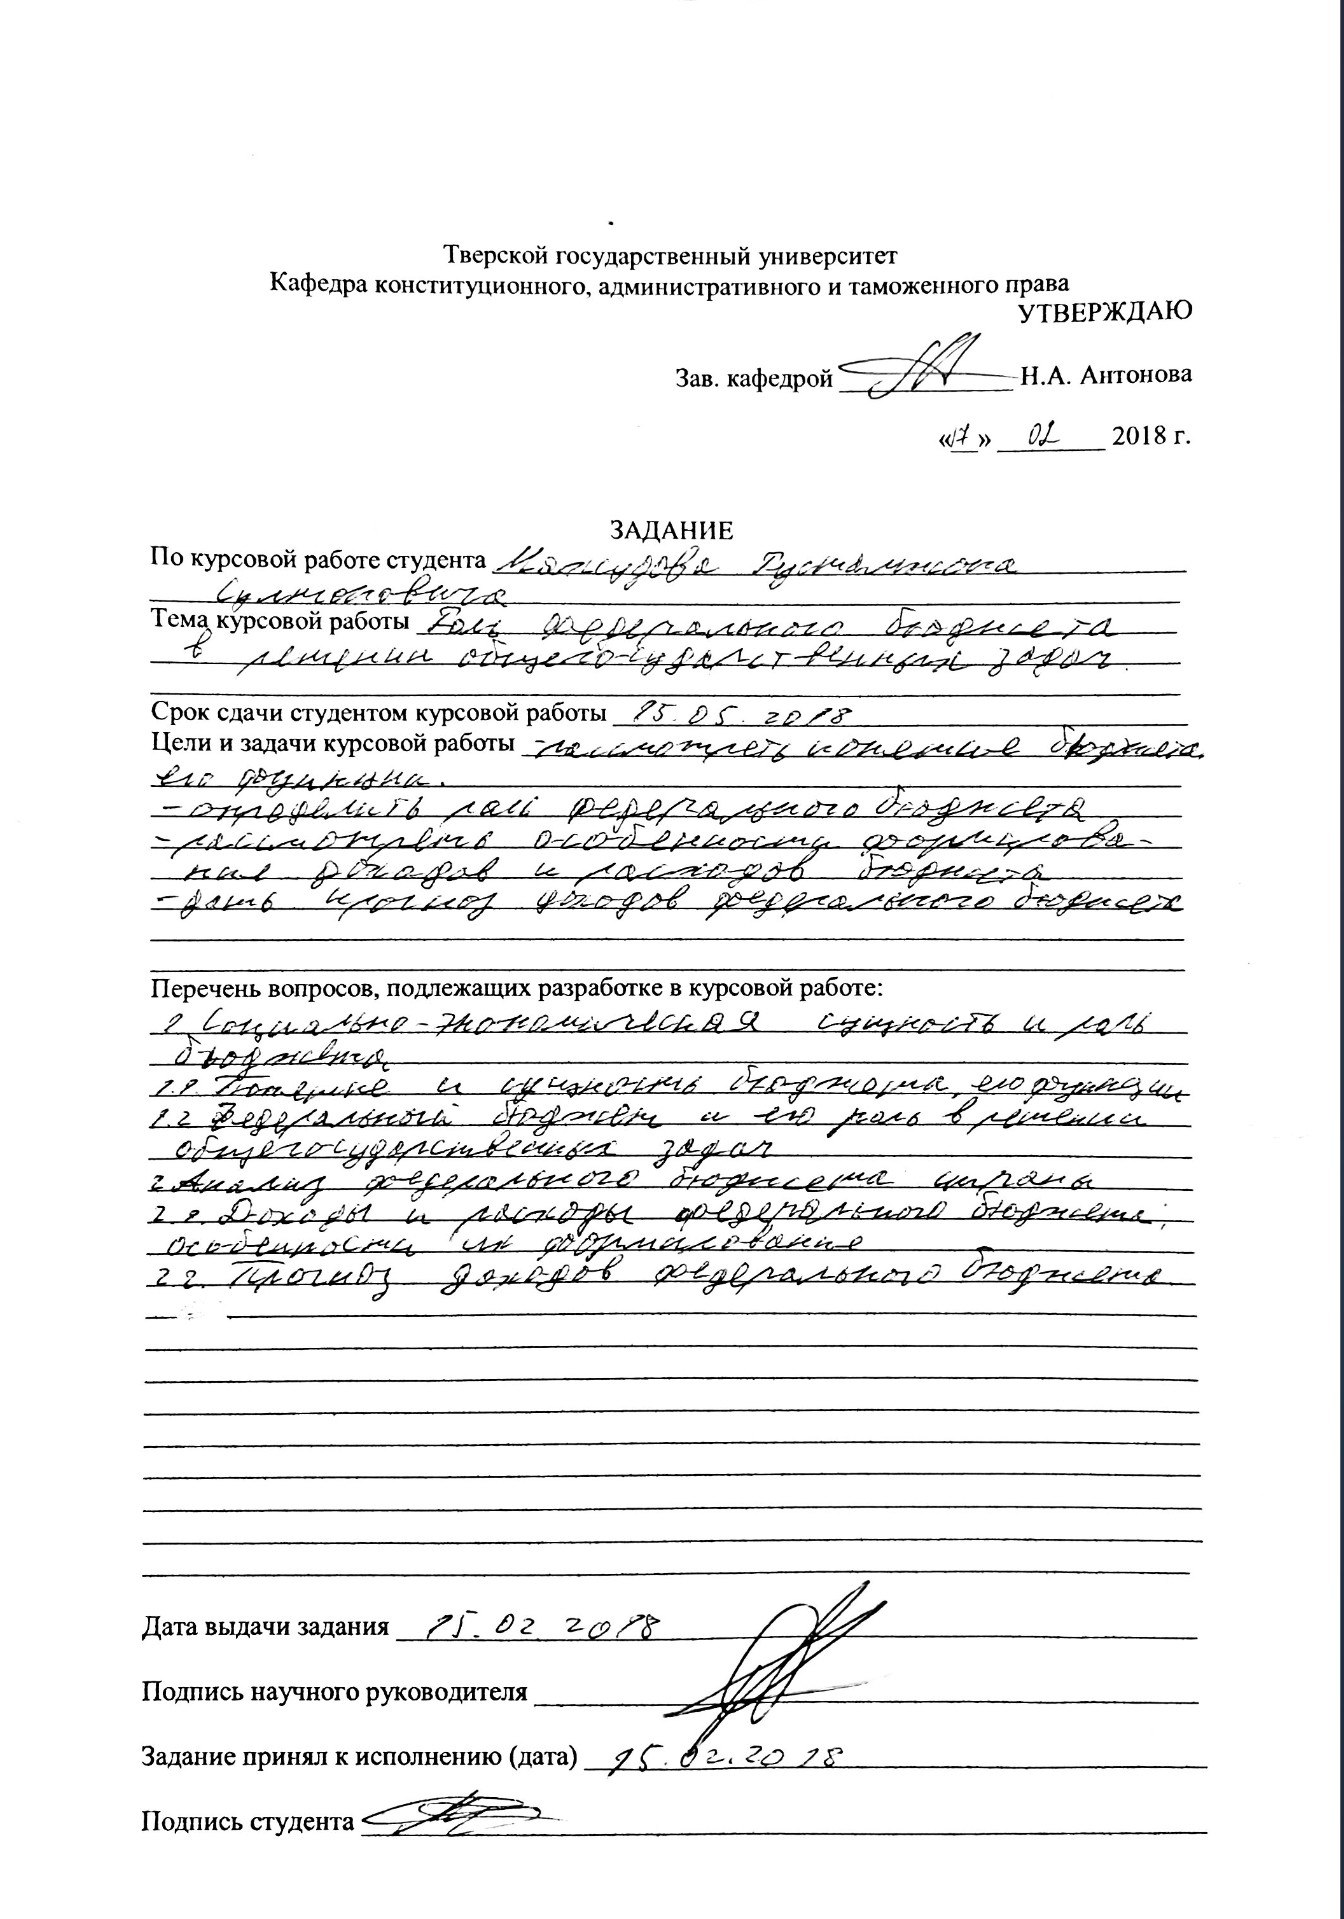 Тверской государственный университет
Кафедра конституционного, административного и таможенного права
УТВЕРЖДАЮ
Зав. кафедрой Н.А. Антонова
«17» 02 2018 г.
ЗАДАНИЕ
По курсовой работе студента
Тема курсовой работы Роль федерального бюджета
в решении общегосударственных задач
Срок сдачи студентом курсовой работы 15.05.2018
Цели и задачи курсовой работы - рассмотреть понятие бюджета,
его функции.
- определить роль федерального бюджета
- рассмотреть особенности формирова-
ния доходов и расходов бюджета
- дать прогноз доходов федерального бюджета
Перечень вопросов, подлежащих разработке в курсовой работе:
1 Социально-экономическая сущность и роль
бюджета
1.1. Понятие и сущность бюджета, его функции
1.2 Федеральный бюджет и его роль в решении
общегосударственных задач
2 Анализ федерального бюджета страны
2.1. Доходы и расходы федерального бюджета:
особенности их формирование
2.2. Прогноз доходов федерального бюджета
Дата выдачи задания 15.02 2018
Подпись научного руководителя
Задание принял к исполнению (дата) 15.02.2018
Подпись студента